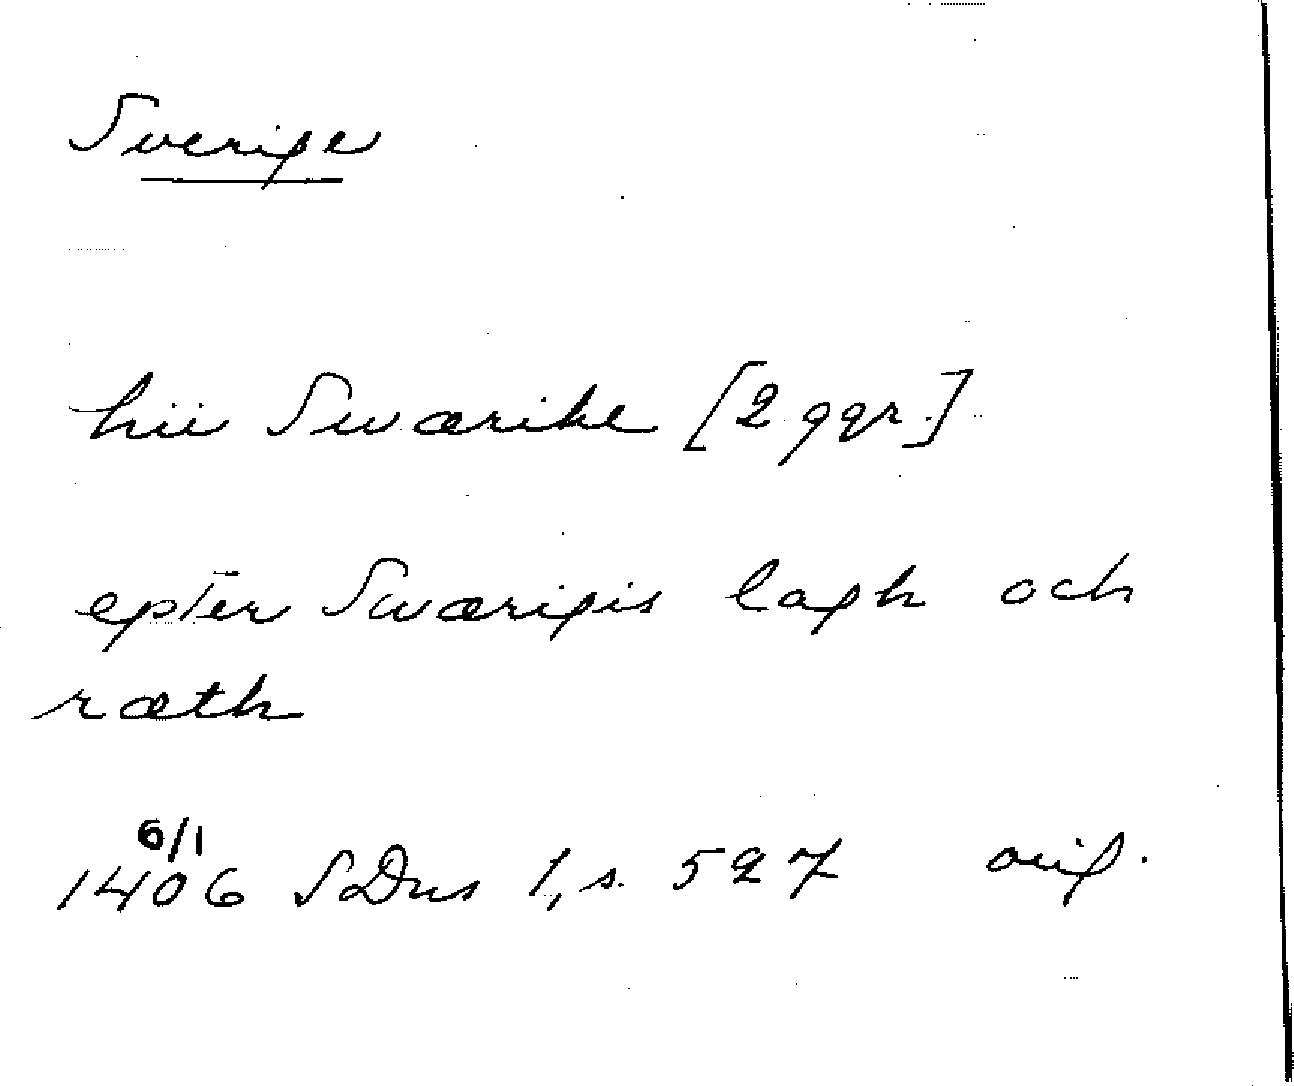 Sverige
hii Swærike [2 ggr.]
epter Swærigis lagh och
ræth
6/1
1406 SDns 1, s. 527 orig.